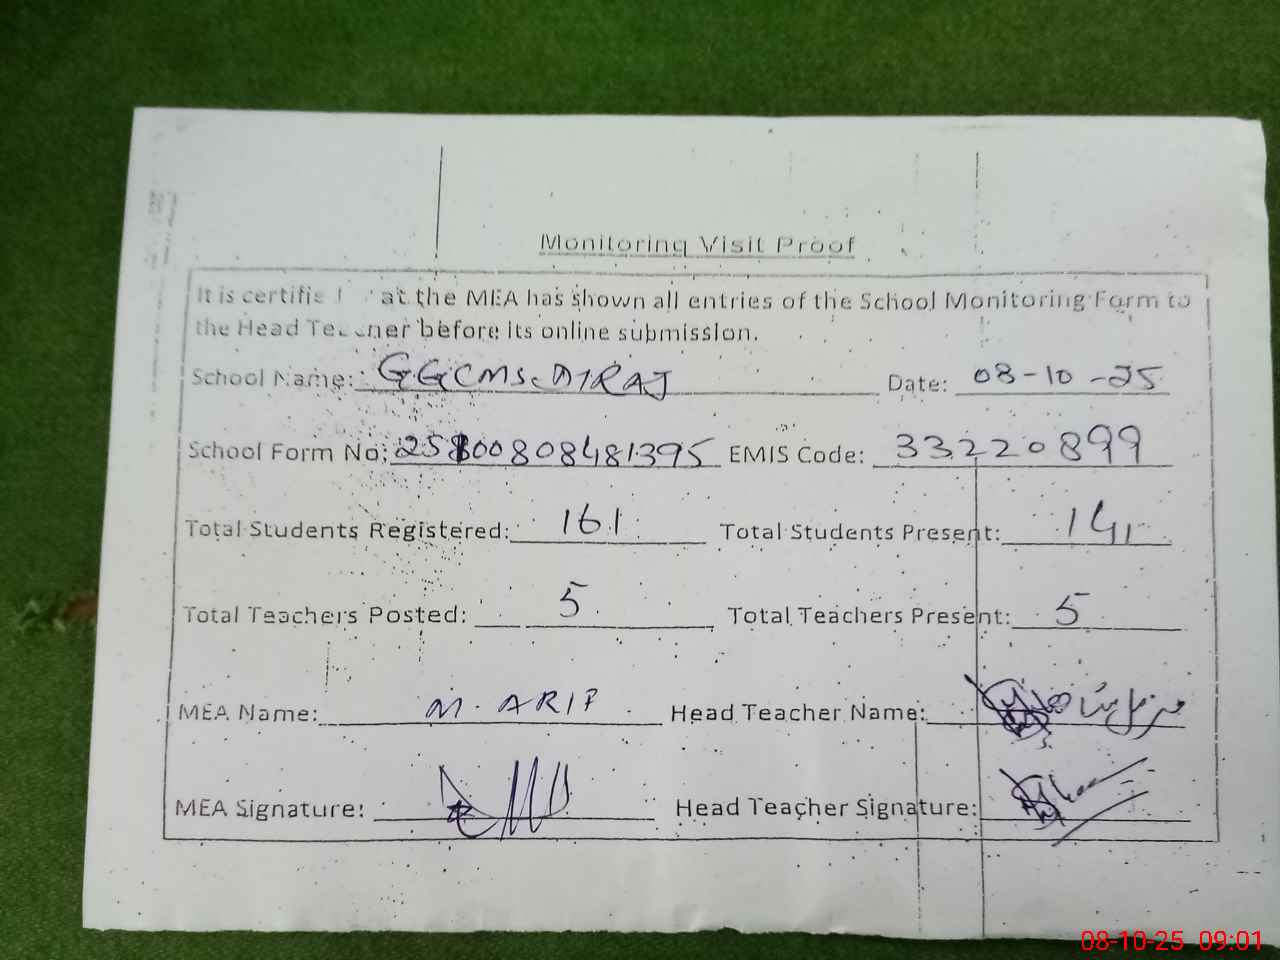 Monitoring Visit Proof
It is certifie at the MEA has shown all entries of the School Monitoring Form to
the Head Teacher before its online submission.
School Name: GGCMS DIRAJ Date: 08-10-25
School Form No: 25800808481395 EMIS Code: 33220899
Total Students Registered: 161 Total Students Present: 141
Total Teachers Posted: 5 Total Teachers Present: 5
MEA Name: M. ARIF Head Teacher Name:
MEA Signature: Head Teacher Signature:
08-10-25 09:01